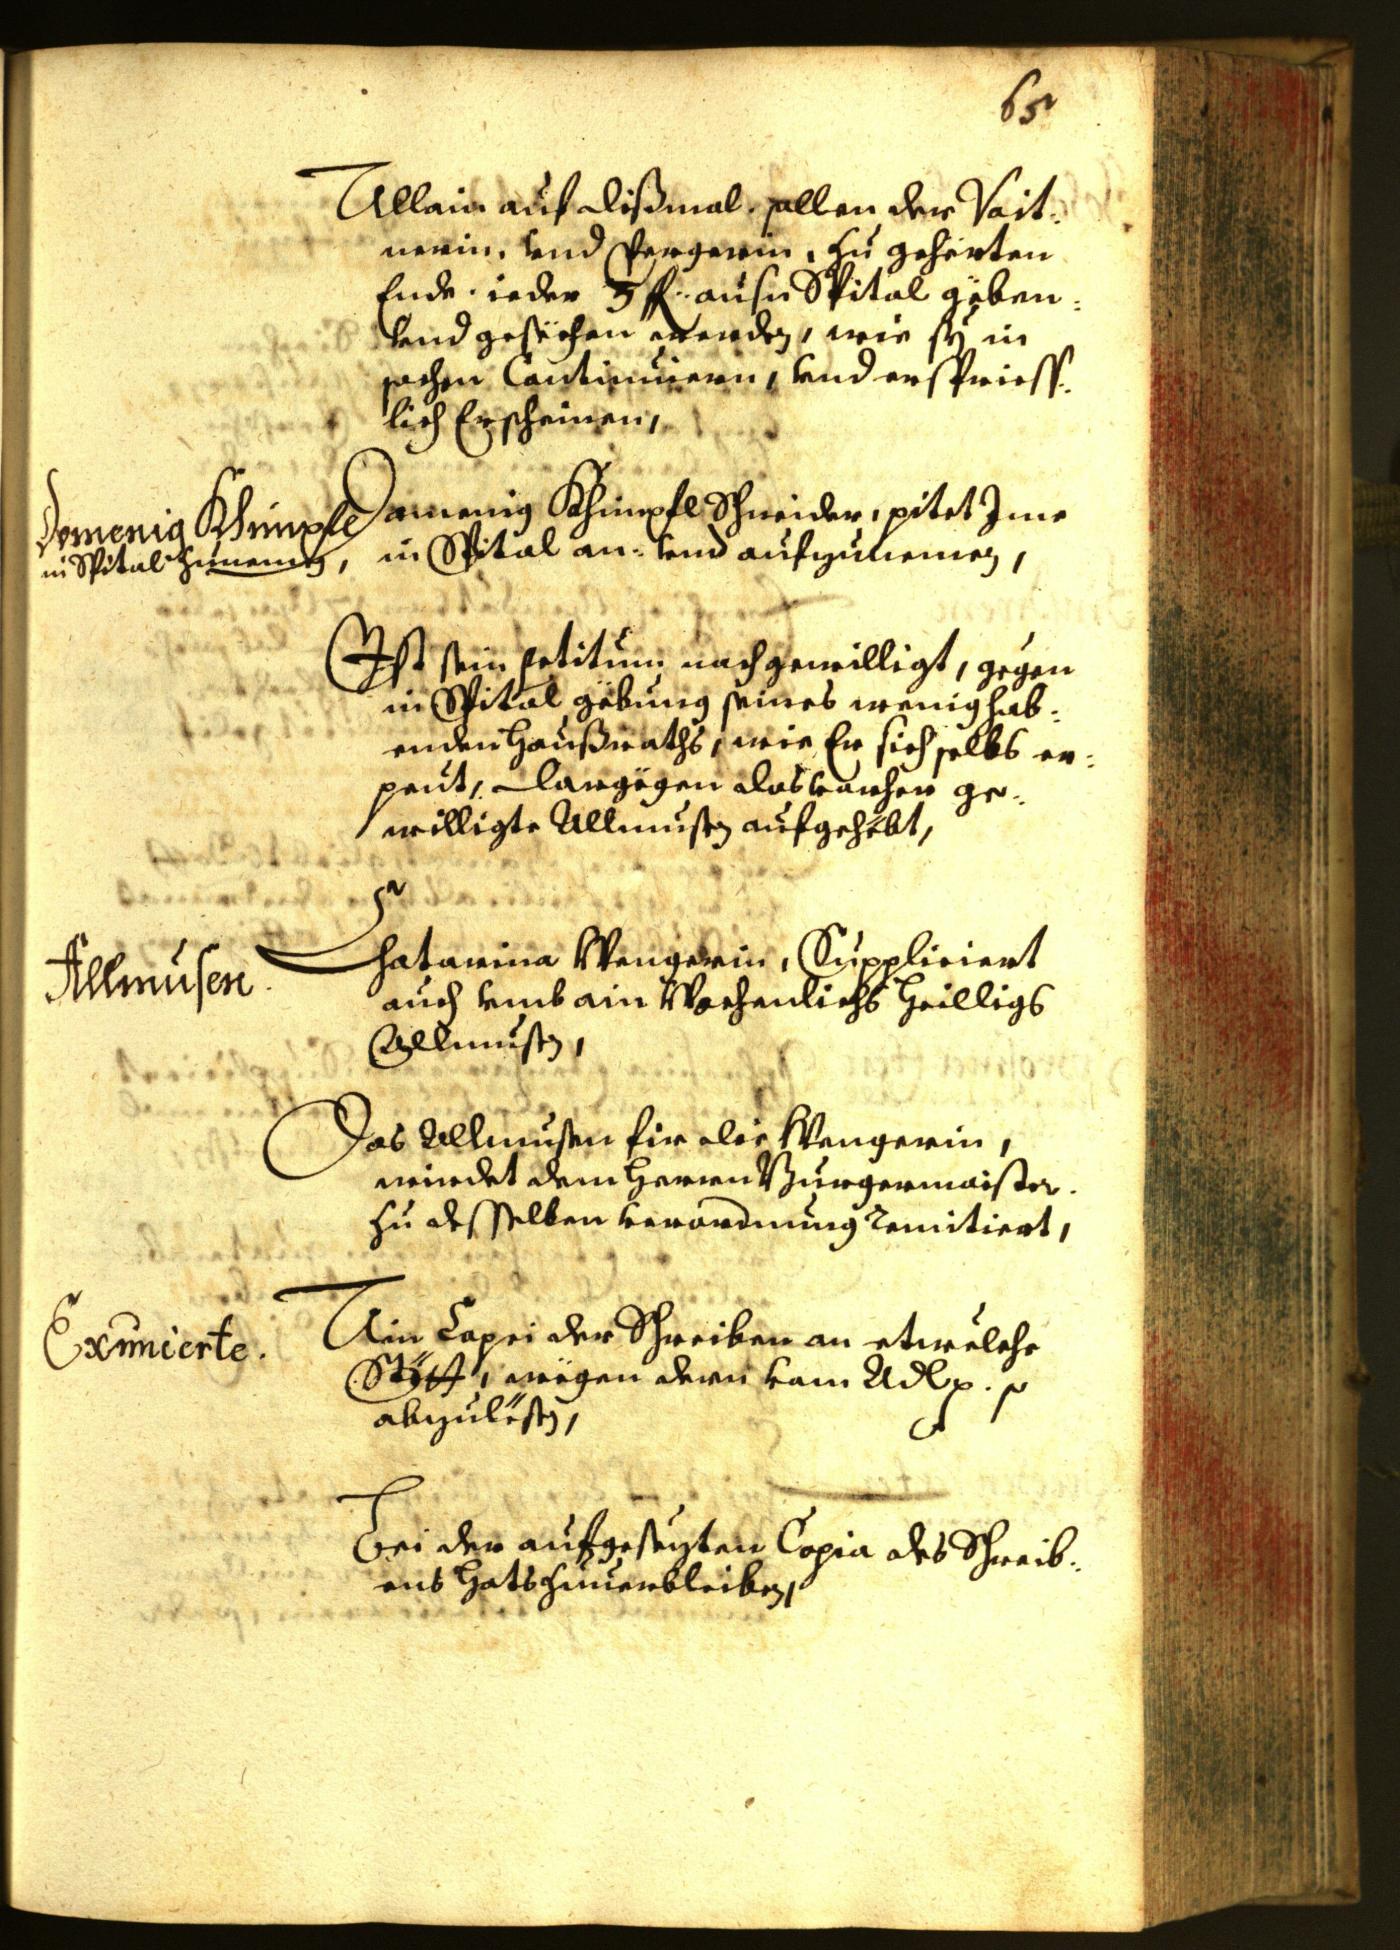 65
Allain auf dißmal sollen der Vait-
nerin, vnd Pergerin, zu geherten
Ende ieder 3 fl. ausn Spital gëben
vnd gesëchen werden, wie sy in
sachen Continuiern, vnd erspriess-
lich Erscheinen,
Domenig Khimpfl
in Spital zunemen,
Domenig Khimpfl Schneider, pitet Jme
in Spital an- vnd aufzunemen,
Ist sein petitum nachgewilligt, gegen
in Spital gëbung seines wenig hab-
enden Haußraths, wie Er sich selbs er-
peut, dargëgen das vorher ge-
willigte Allmusen aufgehëbt,
Allmusen.
Khatarina Wengerin, Suppliciert
auch vmb ain Wochenlichs heilligs
Allmusen,
Das Allmusen fir die Wengerin,
wirdet dem Herrn Burgermaister
zu desselben verordnung remitiert,
Exmierte.
Ain Copei der Schreiben an etwelche
Stött, wëgen dern vom Adl p.
abzulësen,
Bei der aufgesezten Copia des Schreib-
ens hats zuuerbleiben,